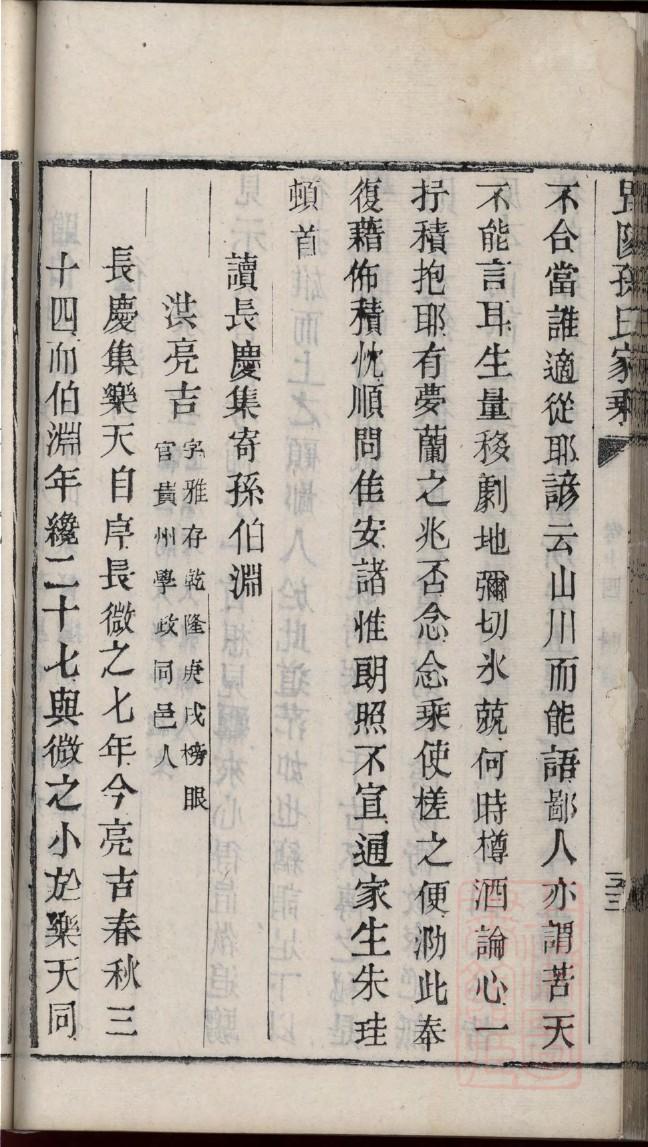 孫氏家乘
不合當誰適從耶諺云山川而能語鄙人亦謂苦天
不能言耳生量移劇地彌切氷兢何時樽酒論心一
抒積抱耶有夢蘭之兆否念念乘使槎之便泐此奉
復藉佈積忱順問佳安諸惟朗照不宣通家生朱珪
頓首
讀長慶集寄孫伯淵
洪亮吉
字雅存乾隆庚戌榜眼
官貴州學政同邑人
長慶集樂天自序長微之七年今亮吉春秋三
十四而伯淵年纔二十七與微之小於樂天同